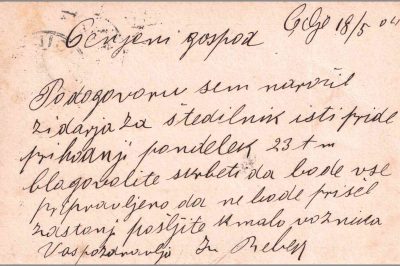 Celje 18/5 04
Cenjeni gospod
Podogovoru sem naročil
zidarja za štedilnik isti pride
prihodnji pondelek 23 t m
blagovolite skrbeti da bode vse
pripravljeno da ne bode prišel
zastonj pošljite kmalo voznika
Vas pozdravlja Iv Rebek